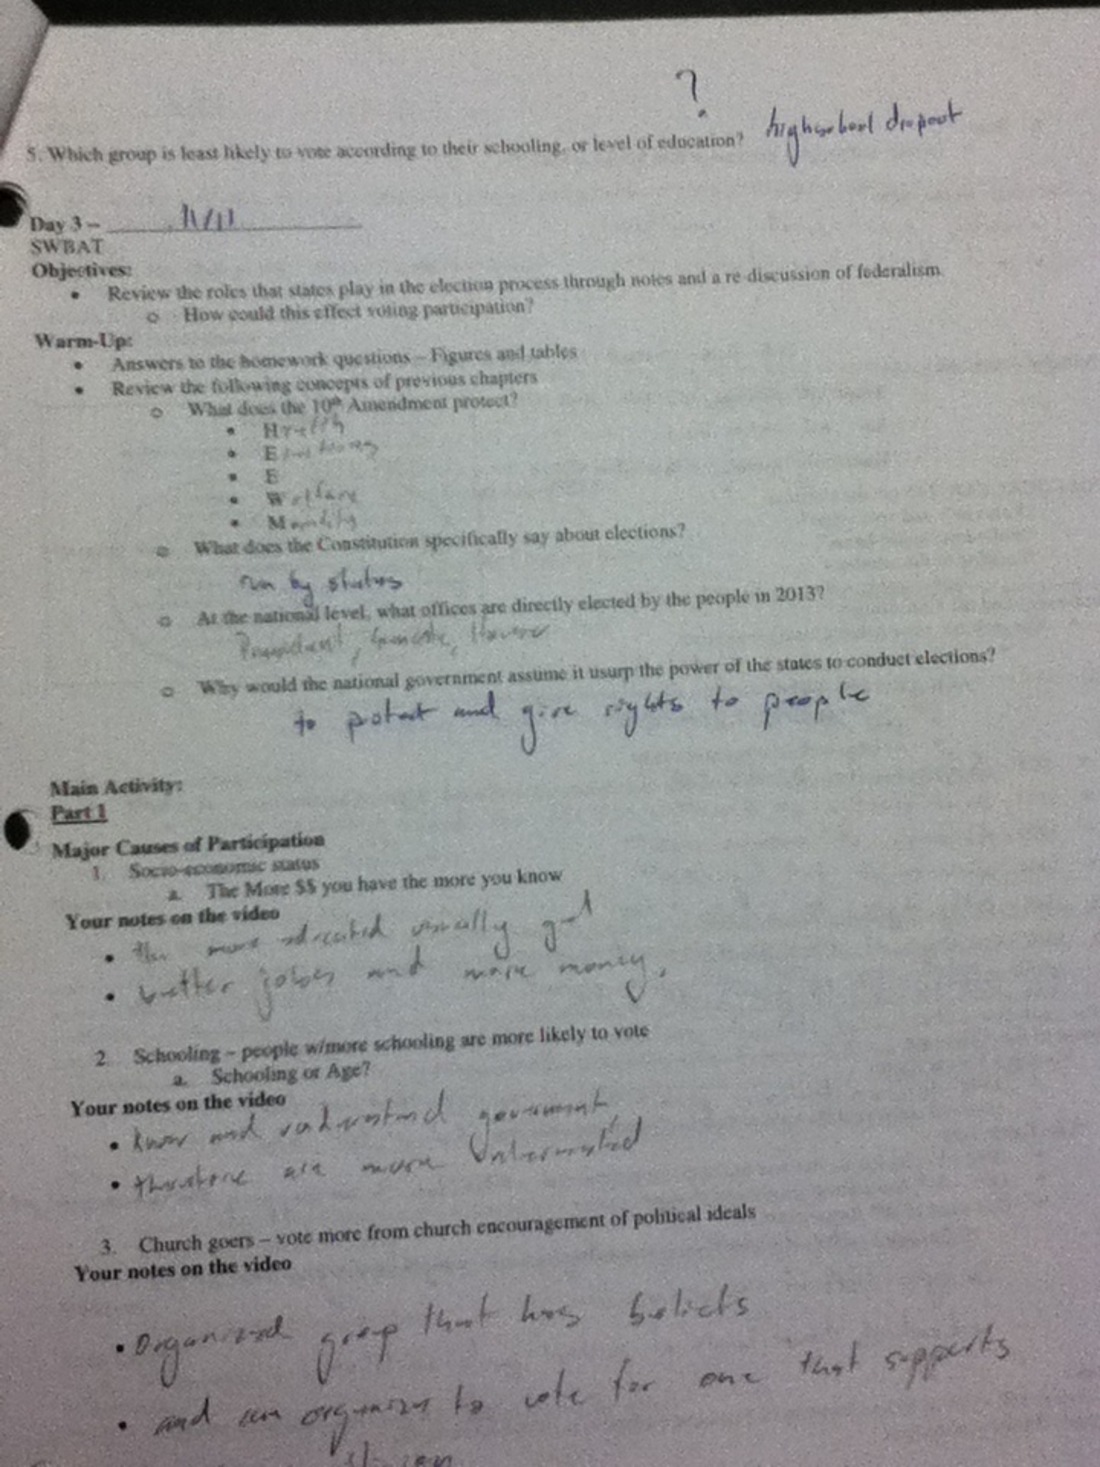 ?
5. Which group is least likely to vote according to their schooling, or level of education? highschool dropout
Day 3 – 11/11
SWBAT
Objectives:
• Review the roles that states play in the election process through notes and a re-discussion of federalism.
o How could this effect voting participation?
Warm-Up:
• Answers to the homework questions – Figures and tables
• Review the following concepts of previous chapters
o What does the 10th Amendment protect?
• Health
• E
• E
• Welfare
• M
o What does the Constitution specifically say about elections?
run by states
o At the national level, what offices are directly elected by the people in 2013?
President, Senate, House
o Why would the national government assume it usurp the power of the states to conduct elections?
to protect and give rights to people
Main Activity:
Part 1
Major Causes of Participation
1. Socio-economic status
a. The More $$ you have the more you know
Your notes on the video
• the more educated usually get
• better jobs and more money.
2. Schooling – people w/more schooling are more likely to vote
a. Schooling or Age?
Your notes on the video
• know and understand government
• therefore are more interested
3. Church goers – vote more from church encouragement of political ideals
Your notes on the video
• Organized group that has beliefs
• and can organize to vote for one that supports